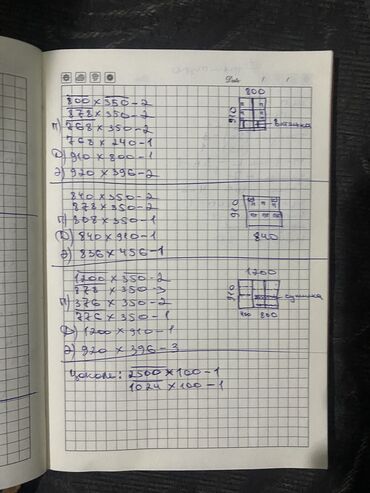 Date / /
800 x 350-2
878 x 350-2
П) 768 x 350-2
768 x 240-1
Ф) 910 x 800-1
Э) 920 x 396-2
800
910
840 x 350-2
878 x 350-2
П) 808 x 350-1
Ф) 840 x 910-1
Э) 836 x 456-1
910
840
1200 x 350-2
878 x 350-3
П) 376 x 350-2
776 x 350-1
Ф) 1200 x 910-1
Э) 920 x 396-3
1200
910
сушилка
400 800
Цоколь: 2500 x 100-1
1024 x 100-1